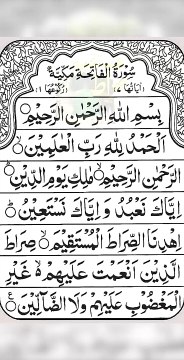 سُوْرَةُ الْفَاتِحَةِ مَكِّيَّةٌ
اٰيَاتُهَا ٧ رُكُوْعُهَا ١
بِسْمِ اللّٰهِ الرَّحْمٰنِ الرَّحِيْمِ
اَلْحَمْدُ لِلّٰهِ رَبِّ الْعٰلَمِيْنَ
الرَّحْمٰنِ الرَّحِيْمِ مٰلِكِ يَوْمِ الدِّيْنِ
اِيَّاكَ نَعْبُدُ وَ اِيَّاكَ نَسْتَعِيْنُ
اِهْدِنَا الصِّرَاطَ الْمُسْتَقِيْمَ صِرَاطَ
الَّذِيْنَ اَنْعَمْتَ عَلَيْهِمْ غَيْرِ
الْمَغْضُوْبِ عَلَيْهِمْ وَلَا الضَّآلِّيْنَ